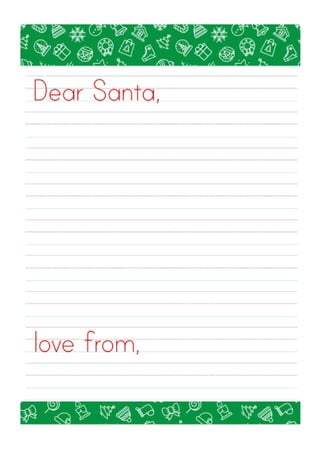 Dear Santa,
love from,